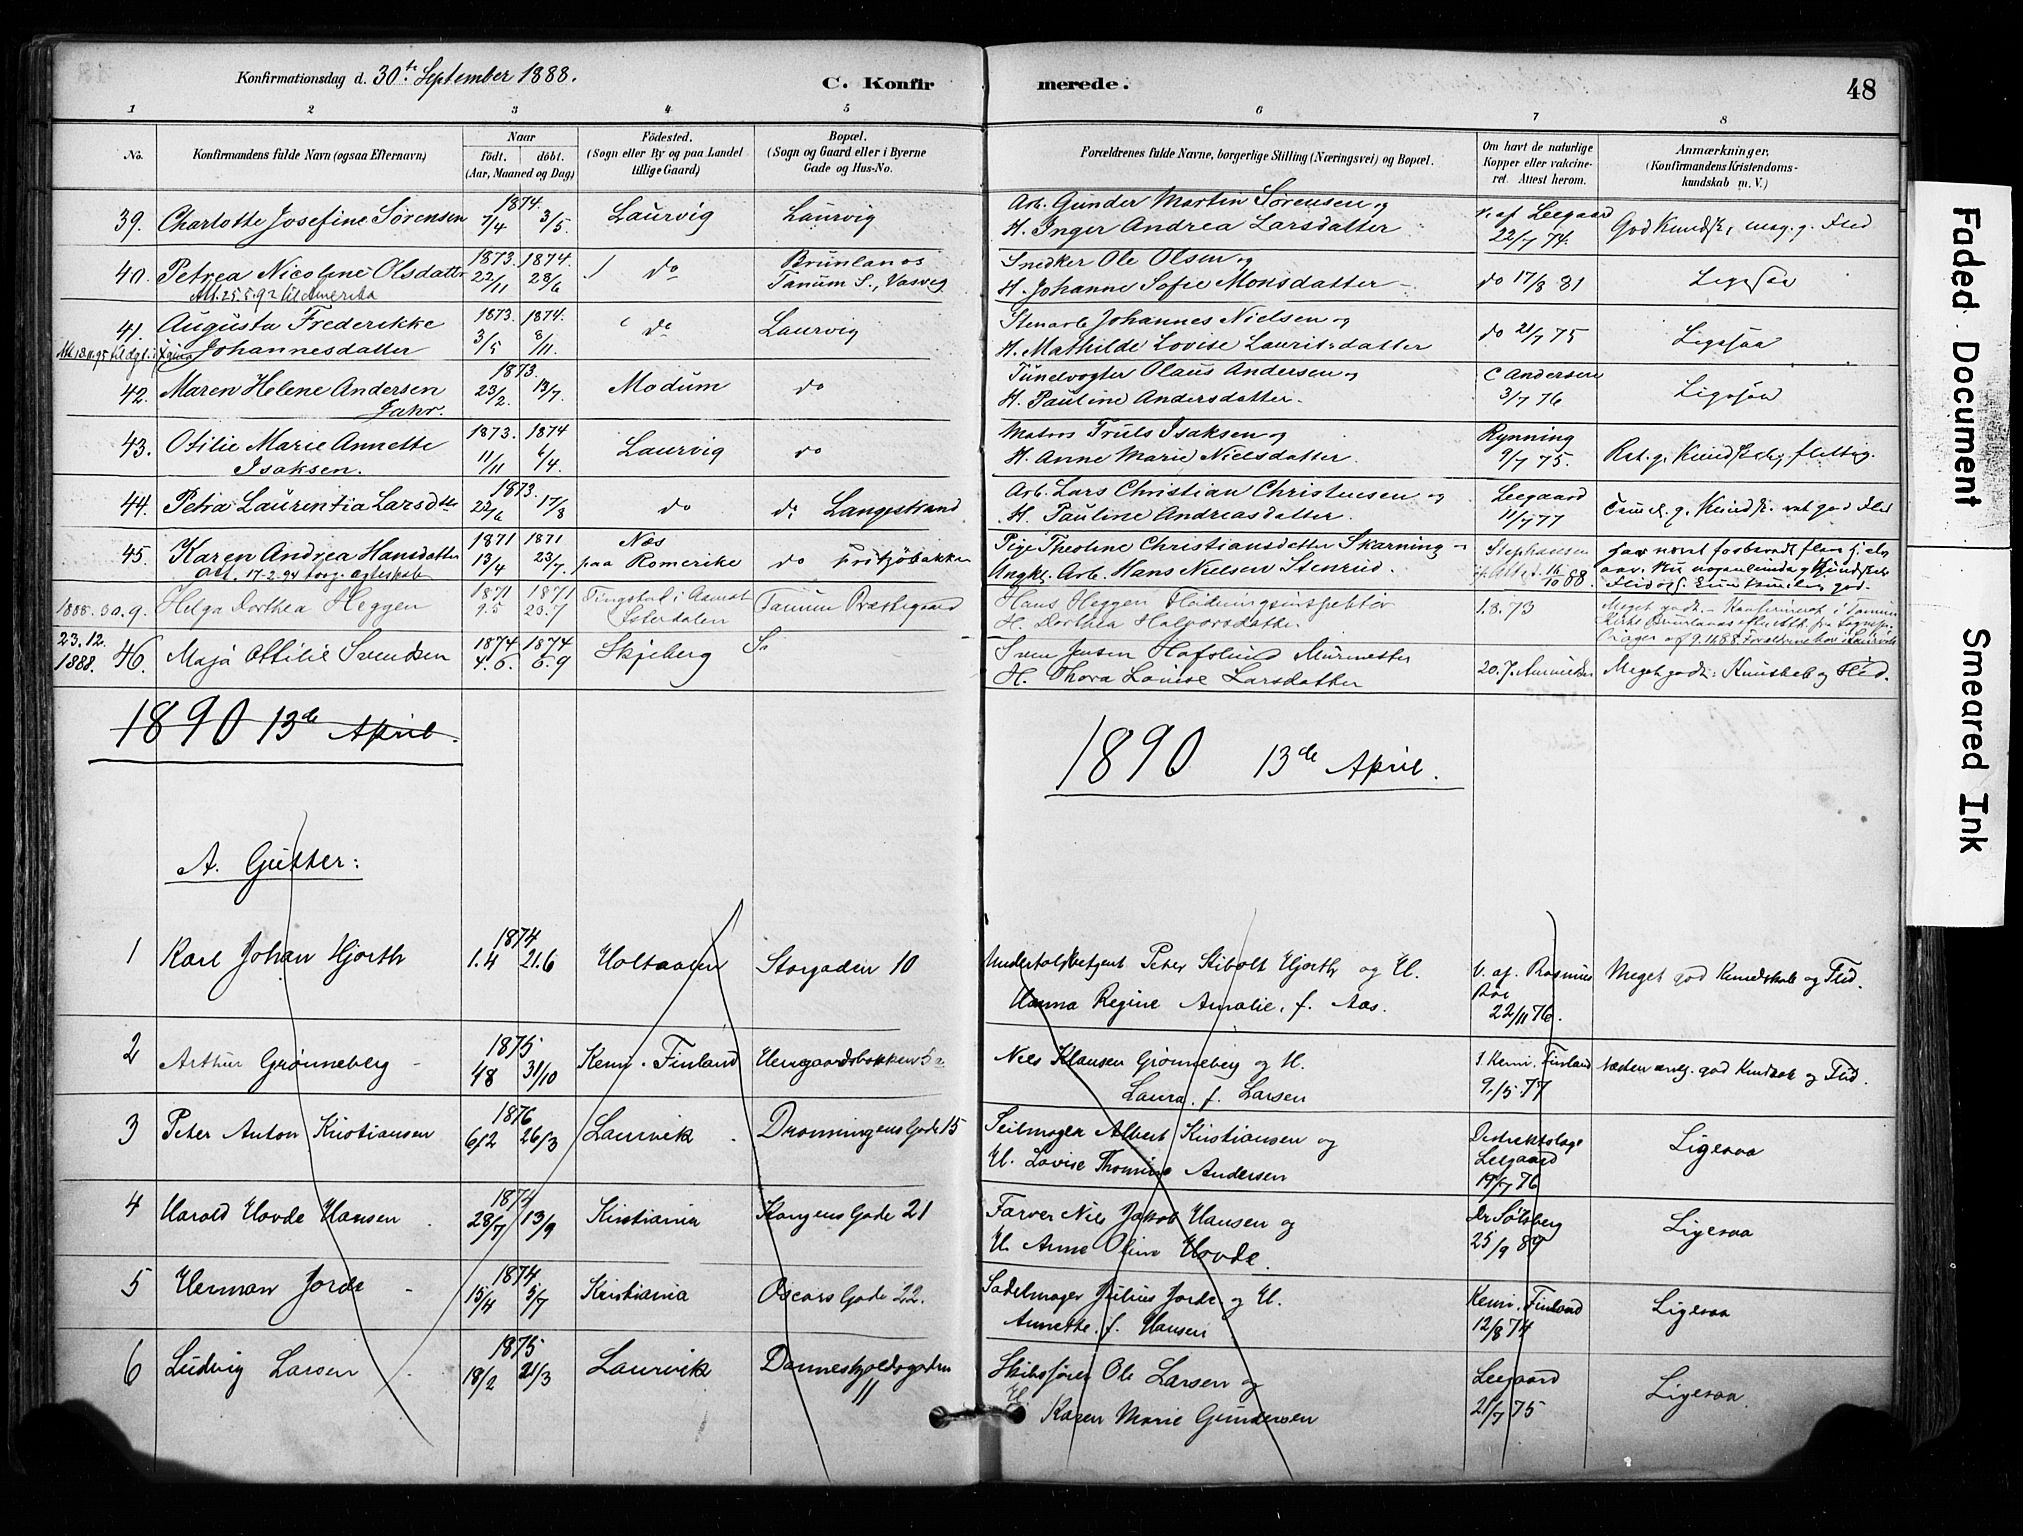 Konfirmationsdag d. 30te September 1888.
C. Konfirmerede.
48
1 2 3 4 5 6 7 8
No. Konfirmandens fulde Navn (ogsaa Efternavn) Naar født. døbt. (Aar, Maaned og Dag) Fødested. (Sogn eller By og paa Landet tillige Gaard) Bopæl. (Sogn og Gaard eller i Byerne Gade og Hus-No. Forældrenes fulde Navne, borgerlige Stilling (Næringsvei) og Bopæl. Om havt de naturlige Kopper eller vakcineret. Attest herom. Anmærkninger. (Konfirmandens Kristendomskundskab m. V.)
39. Charlotte Josefine Sørensen 1874. 7/4 3/5. Laurvig Laurvig Arb. Gunder Martin Sørensen og H. Inger Andrea Larsdatter v. af Leegaard 22/7 74. God Kundsk, meg. g. Flid
40. Petrea Nicoline Olsdatter 1873. 22/11 1874. 28/6 do Brunlanæs Tanum S., Vasvig Snedker Ole Olsen og H. Johanne Sofie Monsdatter do 17/8 81 Ligesaa
Att. 25.5.92 til Amerika
41. Augusta Frederikke Johannesdatter 1873. 3/5 1874. 8/11. do Laurvig Stenarb Johannes Nielsen og H. Mathilde Lovise Lauritsdatter do 21/7 75 Ligesaa
42. Maren Helene Andersen Jahr. 1873. 23/2. 13/7. Modum do Tunelvogter Olaus Andersen og H. Pauline Andersdatter. C Andersen 3/7 76 Ligesaa
43. Otilie Marie Annette Isaksen. 1873. 11/11 1874 6/4. Laurvig do Matros Truls Isaksen og H. Anne Marie Nielsdatter. Rynning 9/7 75. Ret. g. Kundskab, flittig.
44. Petra Laurentia Larsdtr 1873. 22/6 17/8 do do Langestrand Arb. Lars Christian Christensen og H. Pauline Andreasdatter. Leegaard 11/7 77
45. Karen Andrea Hansdatter 1871 13/4 1871 23/7. Næs paa Romerike do Fritzjøbakken Pige Theoline Christiansdatter Skarning Ungkl. Arb. Hans Nielsen Stenrud. Stephansen 16/10 88.
Att. 17-2.94 borg. Ægteskab
1888. 30.9. Helga Dorthea Heggen 1871 9.5 1871 23.7 Tingstad i Aamot Østerdalen Tanum Præstegaard Hans Heggen H. Dorthea Halvorsdatter 1.8.73
23.12. 1888. 46. Maja Ottilie Svendsen 1874 4.6. 1874 6.9 Skjeberg Sven Jensen Hafslund Murmester H. Thora Louise Larsdatter 20.7. Meget godt: Kunskab og Flid.
1890 13de April.
1890 13de April.
A. Gutter:
1 Karl Johan Hjorth 1874 1.4 21.6 Holtaalen Storgaden 10 Undertoldbetjent Peter Stibolt Hjorth og H. Hanna Regine Amalie, f. Aas. V. af. Rasmus Boe 22/11 76. Meget god Kundskab og Flid.
2 Arthur Grønneberg 1875 4/8 31/10 Kemi. Finland Herregaardsbakken 5a Nils Klausen Grønneberg og H. Laura. f. Larsen I. Kemi. Finland 9/5 77 Næsten særl. god Kundsk og Flid.
3 Peter Anton Kristiansen 1876 6/2 26/3 Laurvik Dronningens Gade 15 Seilmager Albert Kristiansen og H. Lovise Thomine Andersen Distriktslæge Leegaard 19/7 76 Ligesaa
4 Harald Hovde Hansen 1874 28/7 13/9 Kristiania Kongens Gade 21 Farver Nils Jakob Hansen og H. Anne Oline Hovde. Dr Sølsberg 25/9 89 Ligesaa
5 Herman Jorde 1874 15/4 5/7 Kristiania Oscars Gade 22. Sadelmager Julius Jorde og H. Annette. f. Hansen Kemi. Finland 12/8 74 Ligesaa
6 Ludvig Larsen 1875 18/2 21/3 Laurvik Danneskjoldsgaden 11 Skibsfører Ole Larsen og H. Karen Marie Gundersen Leegaard 21/7 75 Ligesaa.
Faded Document
Smeared Ink